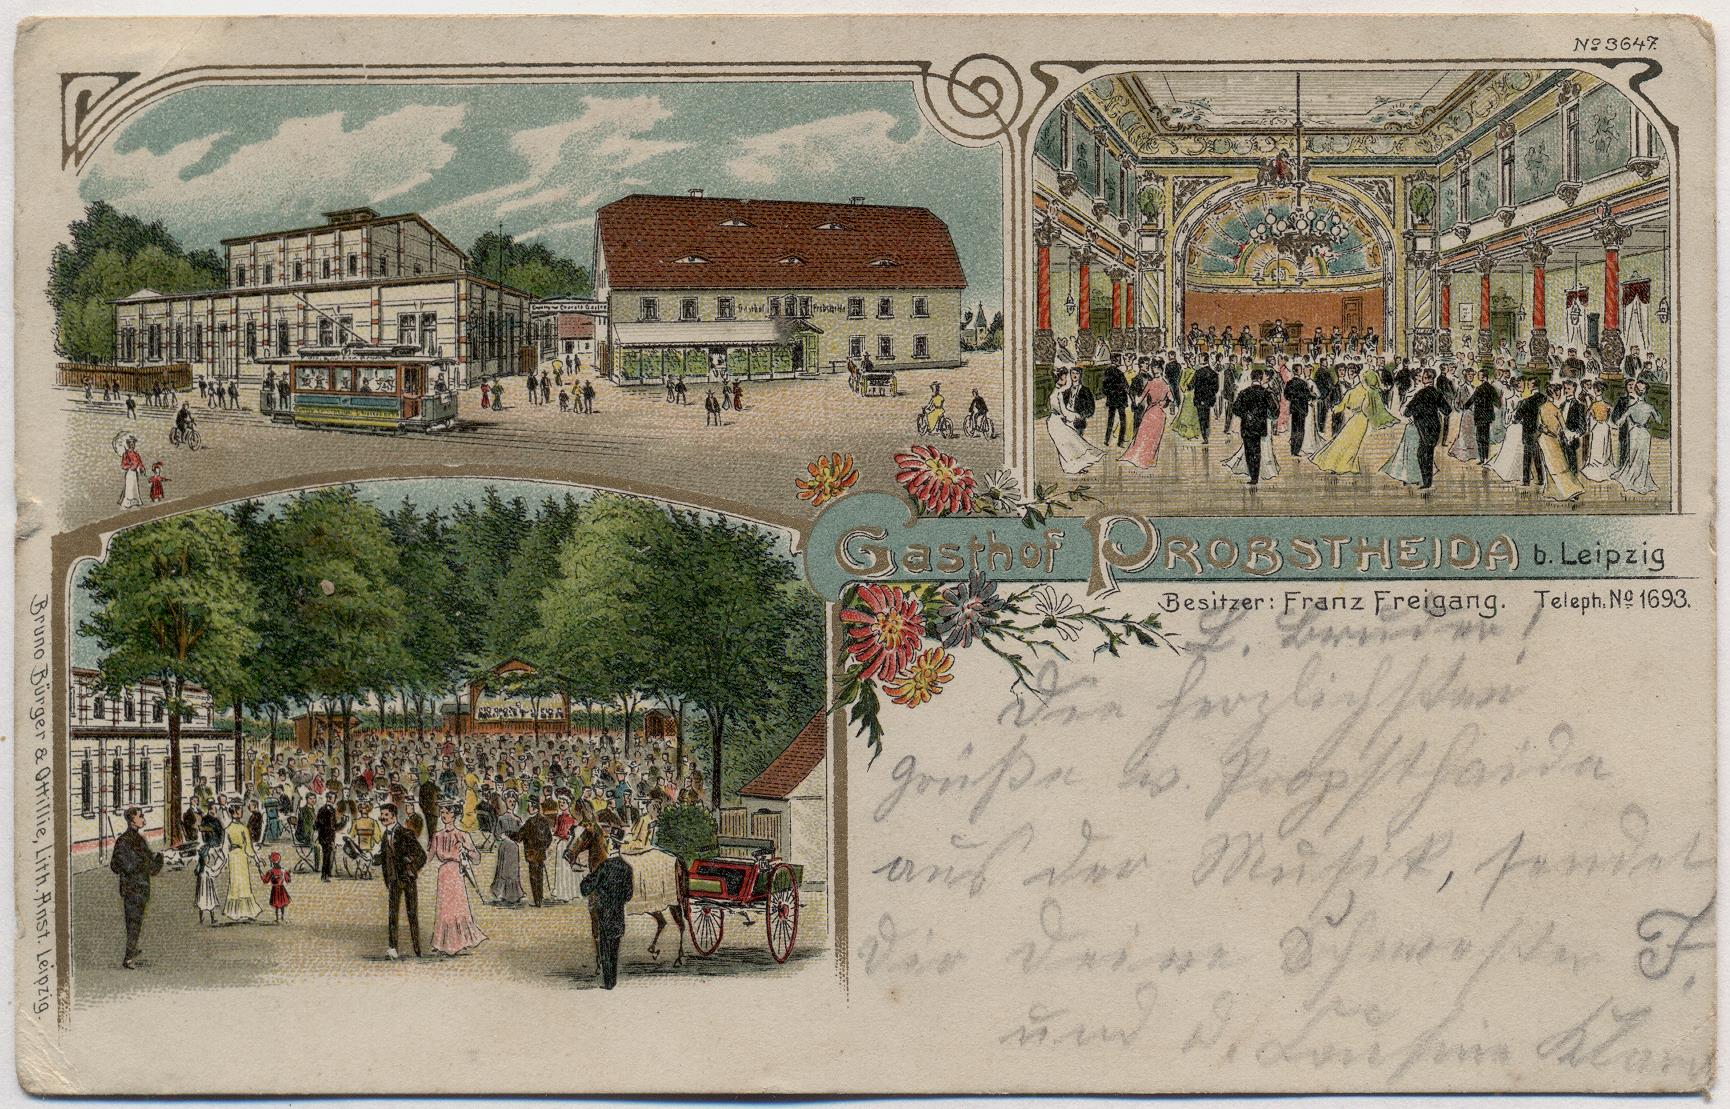 No 3647.
Gasthof Probstheida
Gasthof PROBSTHEIDA b. Leipzig
Besitzer: Franz Freigang. Teleph. No 1693.
L. Bruder!
Die herzlichsten
Grüße v. Propstheida
aus der Musik, sendet
Dir Deine Schwester F.
und d.
Bruno Bürger & Ottilie, Lith. Anst. Leipzig.